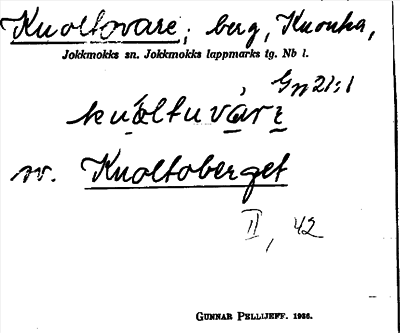 Kuoltovare, berg, Knonka,
Jokkmokks sn. Jokkmokks lappmarks tg. Nb l.
Gn 21:1
kuoltuvārɛ
sv. Kuoltoberget
II, 42
GUNNAR PELLIJEFF. 1936.